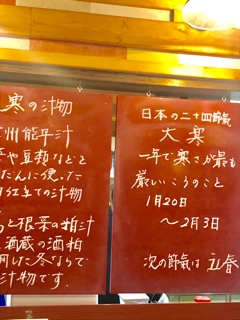 寒の汁物
州能平汁
や豆類などを
だんに使った
仕立ての汁物
と根菜の粕汁
酒蔵の酒粕
用した冬ならで
汁物です.
日本の二十四節気
大寒
一年で寒さが最も
厳しいころのこと
1月20日
〜2月3日
次の節気は 立春